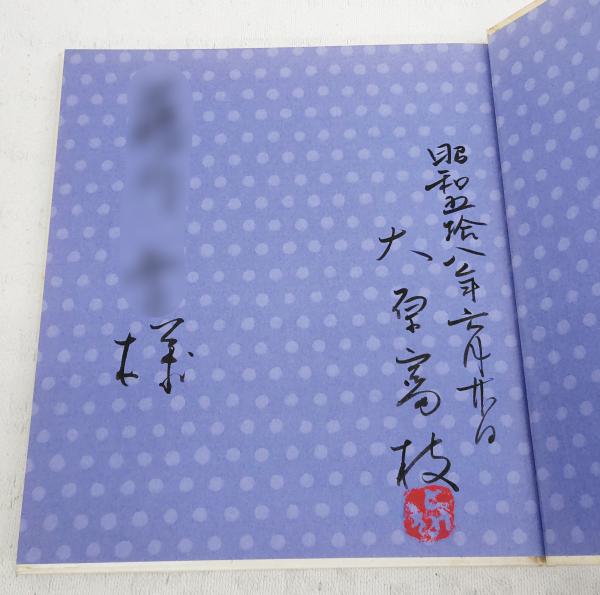 昭和五拾八年六月廿日
大原富枝
様